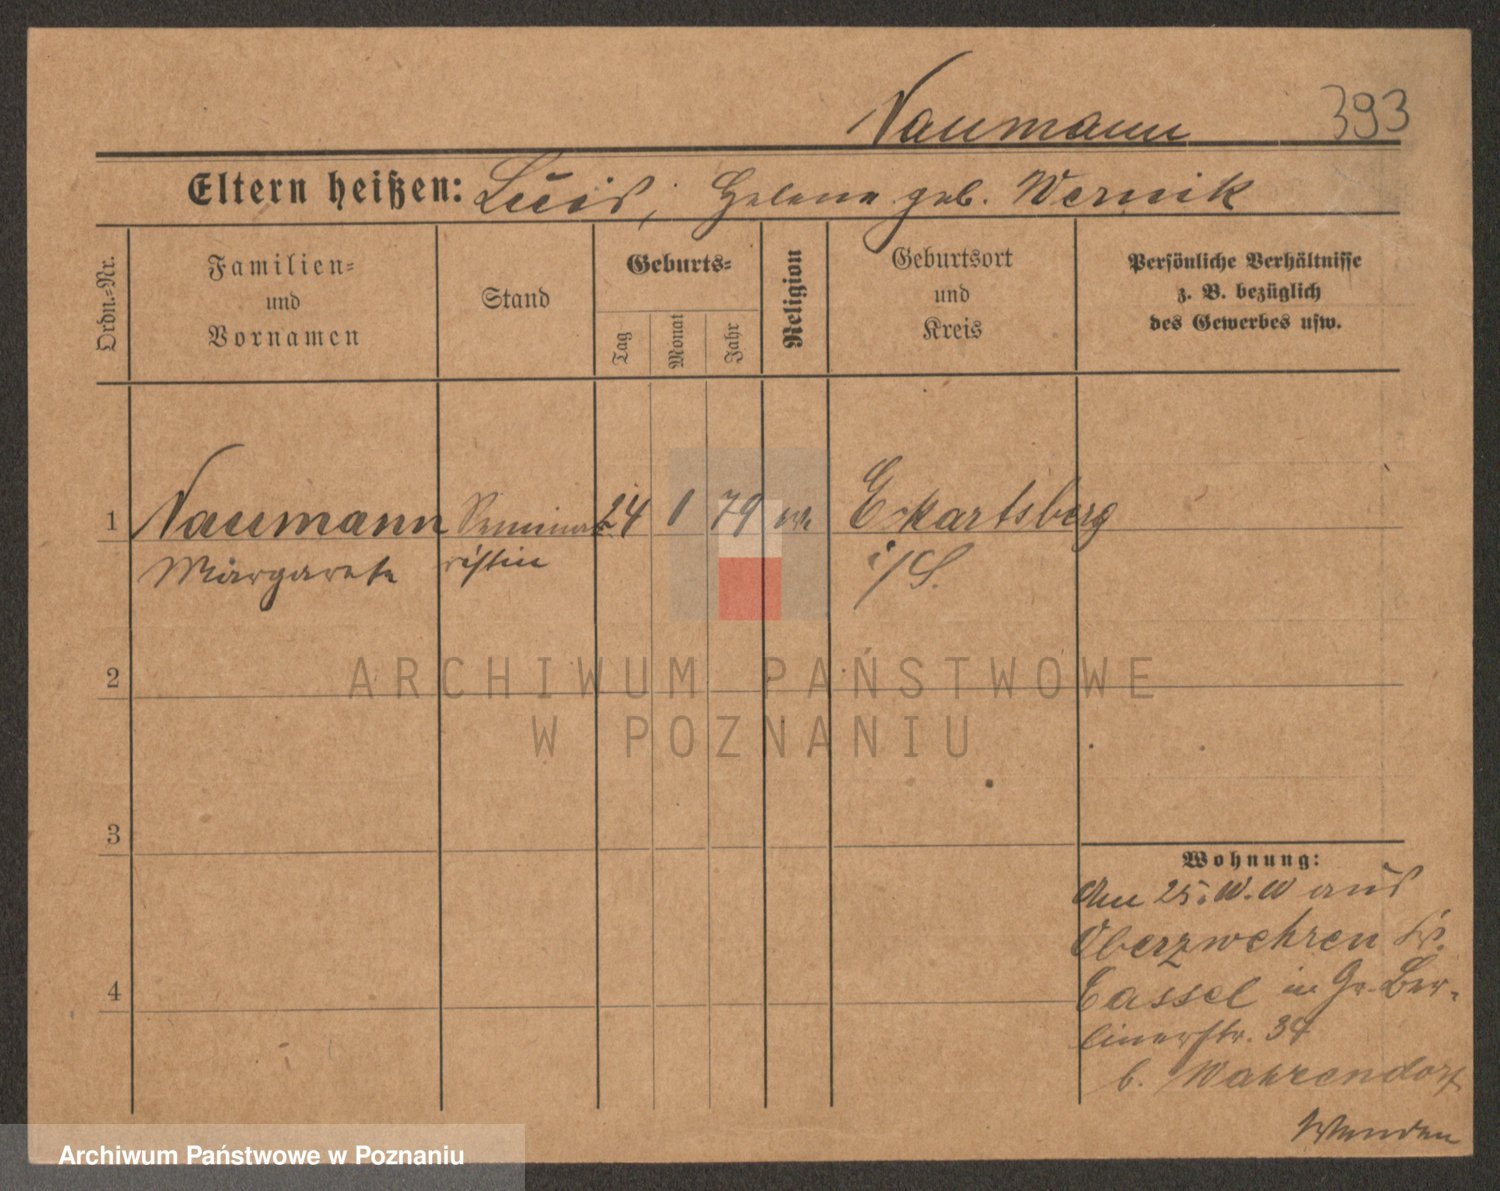 Naumann 393
Eltern heißen: Luis, Helene geb. Wernik
Ordn.=Nr.
Familien=
und
Vornamen
Stand
Geburts=
Tag
Monat
Jahr
Religion
Geburtsort
und
Kreis
Persönliche Verhältnisse
z. B. bezüglich
des Gewerbes usw.
1 Naumann Semina- 24 1 79 ev. Eckartsberg
Margarete ristin i/S.
2
3
4
Wohnung:
Am 25. aus
Oberzwehren Kr.
Cassel in Gr. Ber-
linerstr. 34
b. Wahrendorf
Wenden
ARCHIWUM PAŃSTWOWE
W POZNANIU
Archiwum Państwowe w Poznaniu